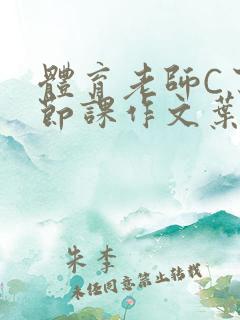 體育老師C了
節課作文葉
朱李
未經同意禁止轉載